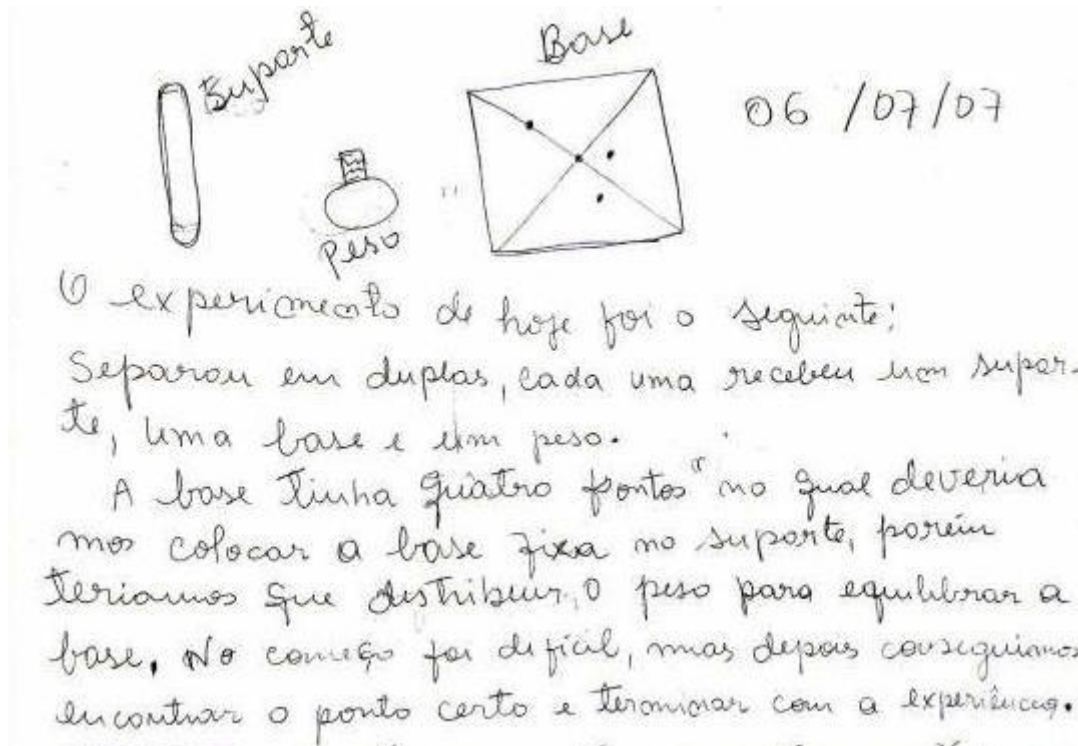 Suporte
Base
06 /07/07
Peso
O experimento de hoje foi o seguinte:
Separou em duplas, cada uma recebeu um supor-
te, uma base e um peso.
A base tinha quatro pontos" no qual deveria
mos colocar a base fixa no suporte, porém
teriamos que distribuir o peso para equilibrar a
base. No começo foi dificil, mas depois conseguimos
encontrar o ponto certo e terminar com a experiência.